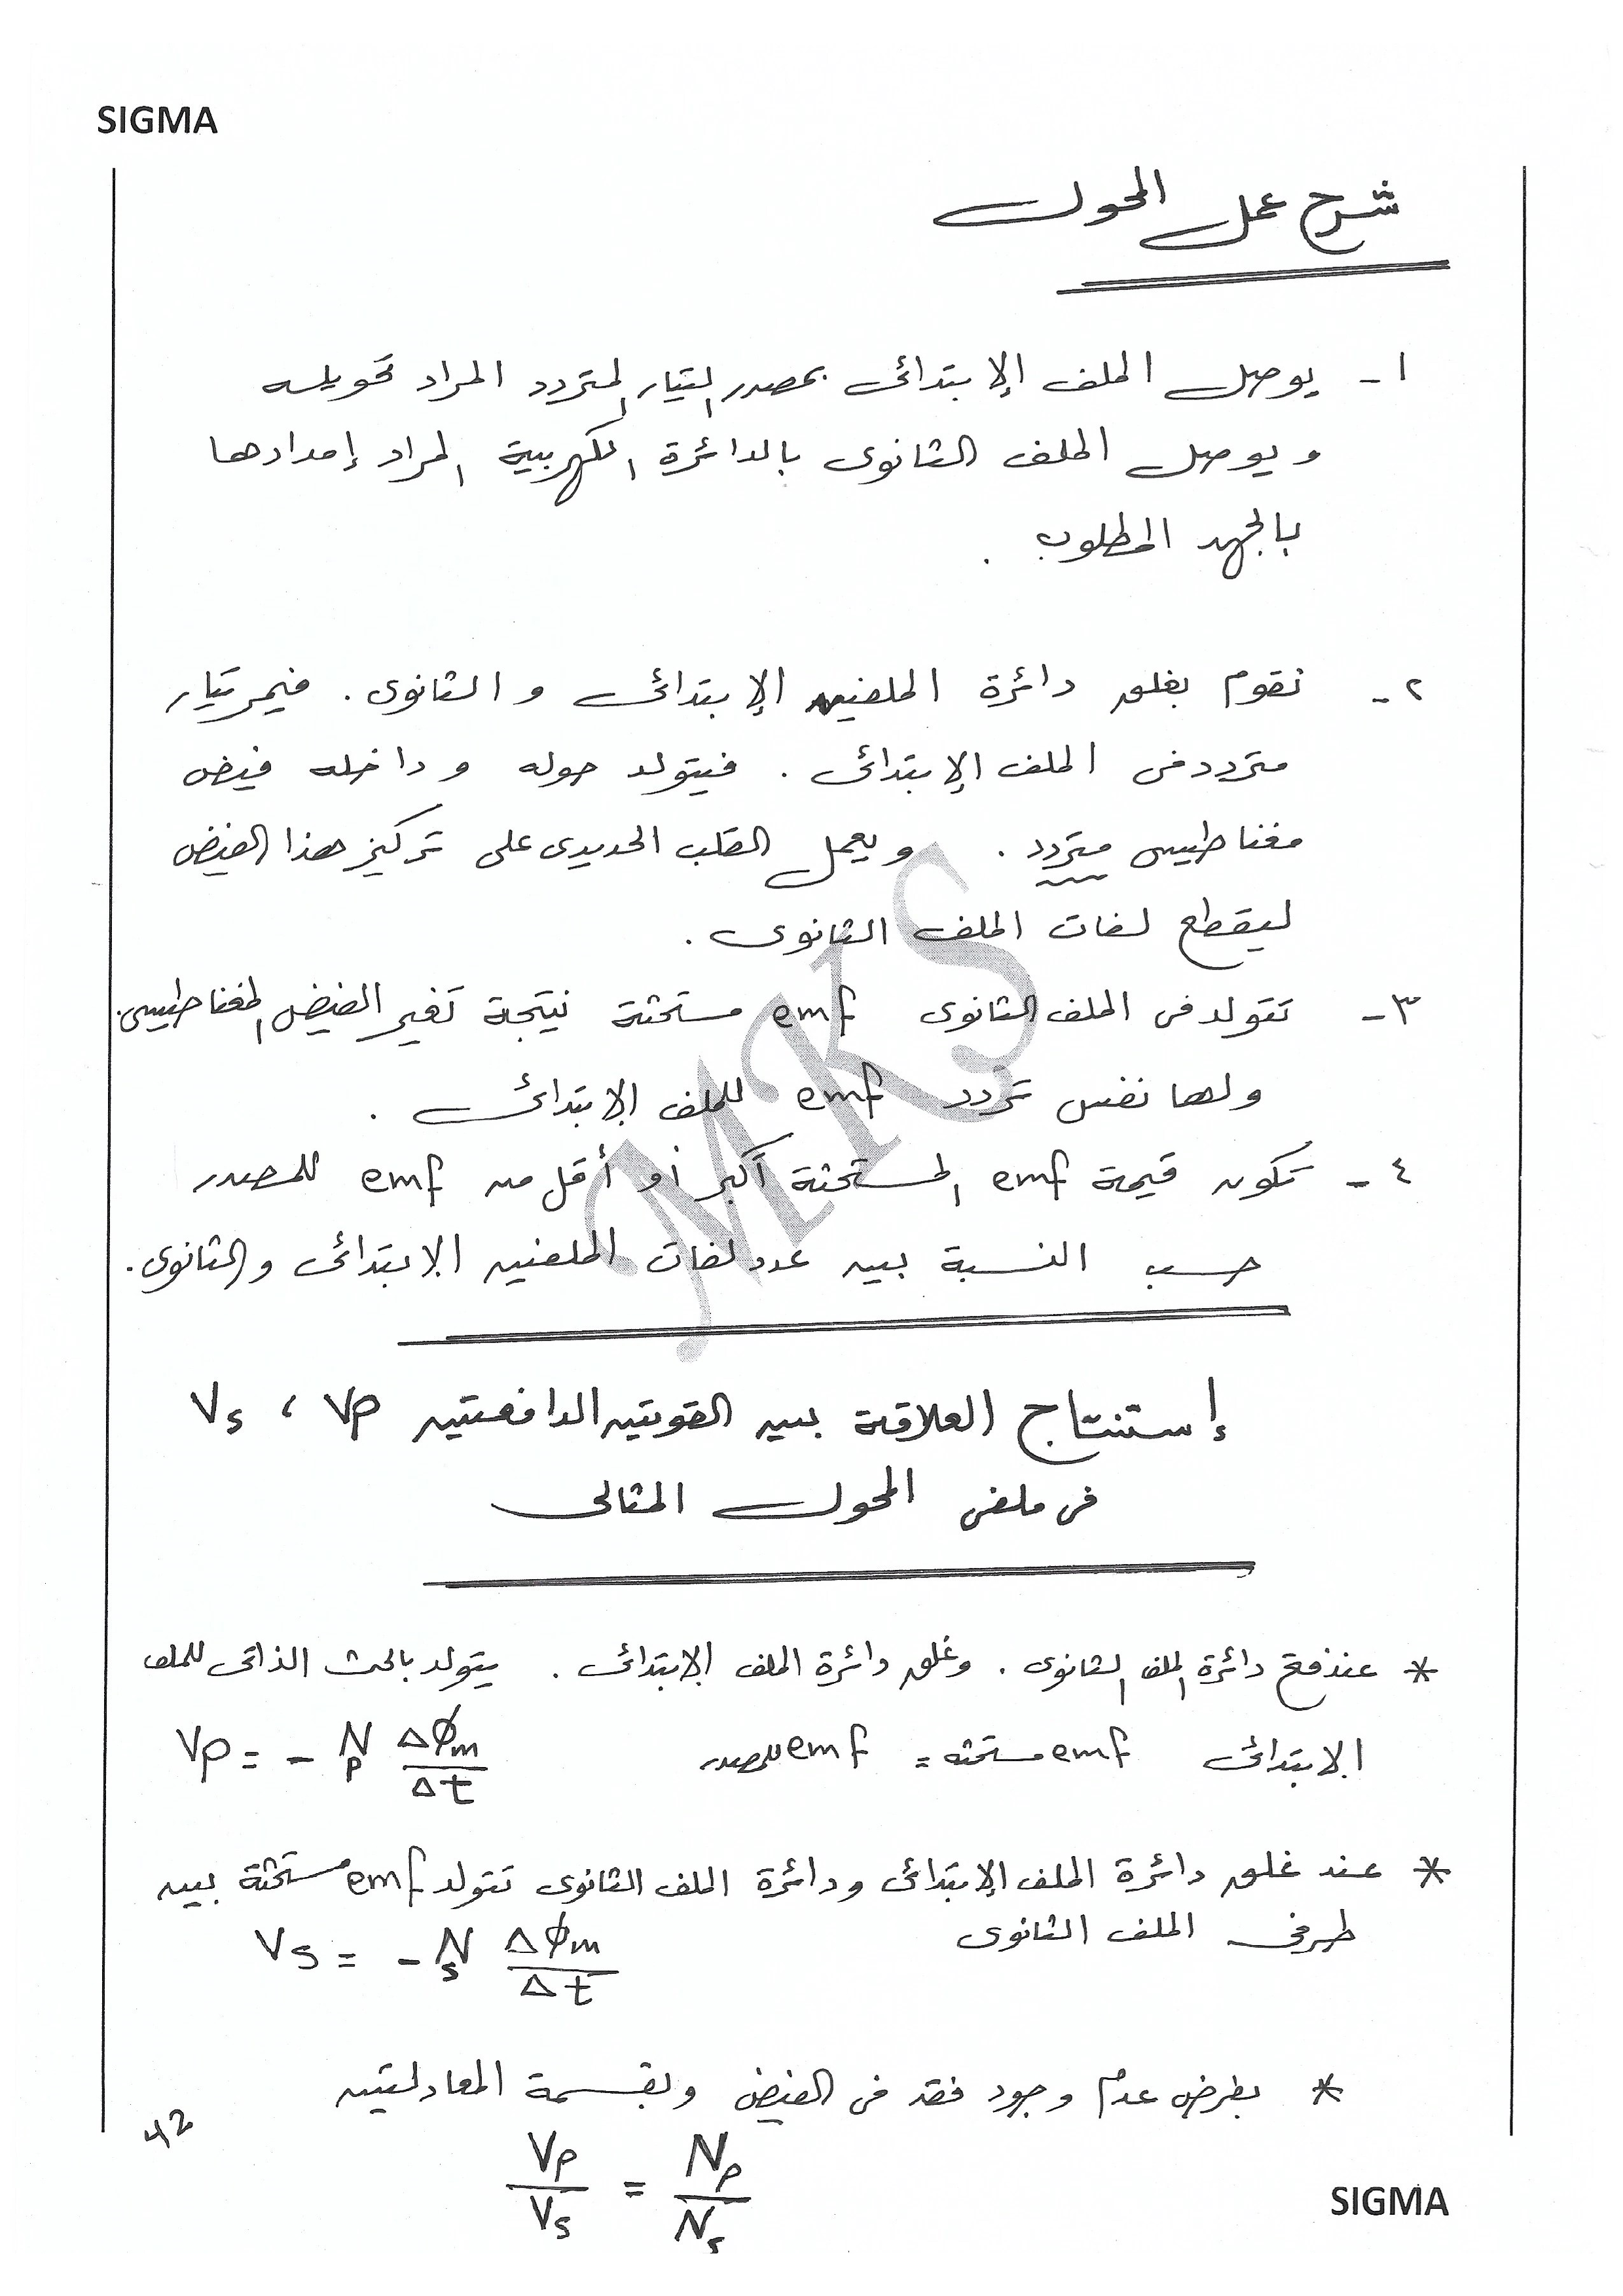 SIGMA
شرح عمل المحول
١- يوصل الملف الإبتدائى بمصدر التيار المتردد المراد تحويله
ويوصل الملف الثانوى بالدائرة الكهربية المراد إمدادها
بالجهد المطلوب .
٢- نقوم بغلق دائرة الملفين الإبتدائى والثانوى . فيمر تيار
متردد فى الملف الإبتدائى . فيتولد حوله وداخله فيض
مغناطيسى متردد . ويعمل القلب الحديدى على تركيز هذا الفيض
ليقطع لفات الملف الثانوى .
٣- تتولد فى الملف الثانوى emf مستحثة نتيجة تغير الفيض المغناطيسى.
ولها نفس تردد emf للملف الإبتدائى .
٤- تكون قيمة emf المستحثة أكبر أو أقل من emf للمصدر
حسب النسبة بين عدد لفات الملفين الإبتدائى والثانوى .
MKS
إستنتاج العلاقة بين القوتين الدافعتين Vs ، Vp
فى ملفى المحول المثالى
* عند فتح دائرة الملف الثانوى . وغلق دائرة الملف الإبتدائى . يتولد بالحث الذاتى للملف
الابتدائى emf مستحثه = emf للمصدر Vp = - Np Δϕm / Δt
* عند غلق دائرة الملف الإبتدائى ودائرة الملف الثانوى تتولد emf مستحثة بين
طرفى الملف الثانوى Vs = - Ns Δϕm / Δt
* بفرض عدم وجود فقد فى الفيض وبقسمة المعادلتين
Vp / Vs = Np / Ns
42
SIGMA